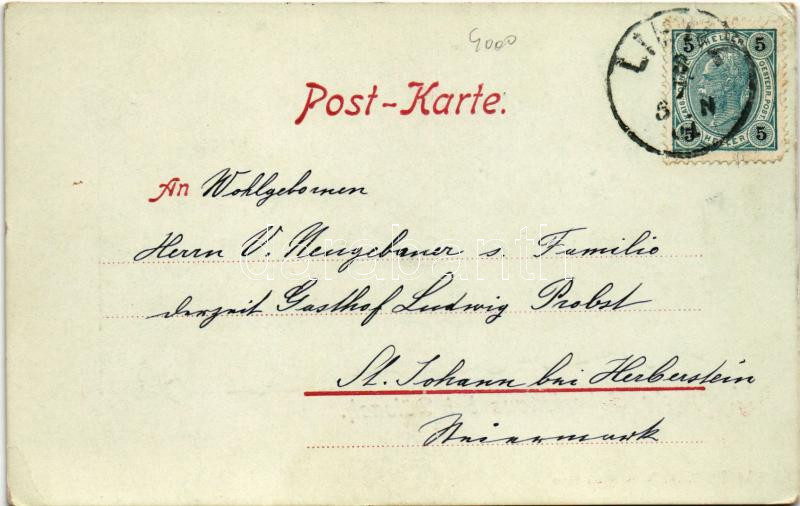 4000
5 HELLER 5
5 HELLER 5
Post-Karte.
An Wohlgebornen
Herrn V. Neugebauer s. Familie
derzeit Gasthof Ludwig Probst
St. Johann bei Herberstein
Steiermark
darabanth